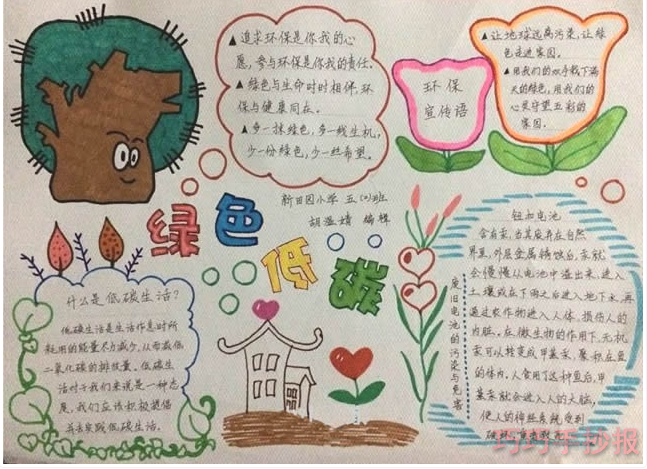 ▲追求环保是你我的心
愿，参与环保是你我的责任。
▲绿色与生命时时相伴，环
保与健康同在。
▲多一抹绿色，多一线生机，
少一份绿色，少一丝希望。
环保
宣传语
▲让地球远离污染，让绿
色走进家园。
▲用我们的双手载下满
天的绿色，用我们的
心灵守望五彩的
家园。
新田园小学 五(2)班
编辑
绿色
低碳
什么是低碳生活？
低碳生活是生活作息时所
耗用的能量尽力减少，从而减低
二氧化碳的排放量。低碳生
活对于我们来说是一种态
度，我们应该积极提倡
并去实践低碳生活。
废旧电池的污染与危害
钮扣电池
含有汞，当其废弃在自然
界里，外层金属锈蚀后，汞就
会慢慢从电池中溢出来，进入
土壤或在下雨之后进入地下水，再
通过农作物进入人体，损伤人的
内脏。在微生物的作用下，无机
汞可以转变成甲基汞，聚积在鱼
的体内，人食用了这种鱼后，甲
基汞就会进入人的大脑，
使人的神经系统受到
巧巧手抄报